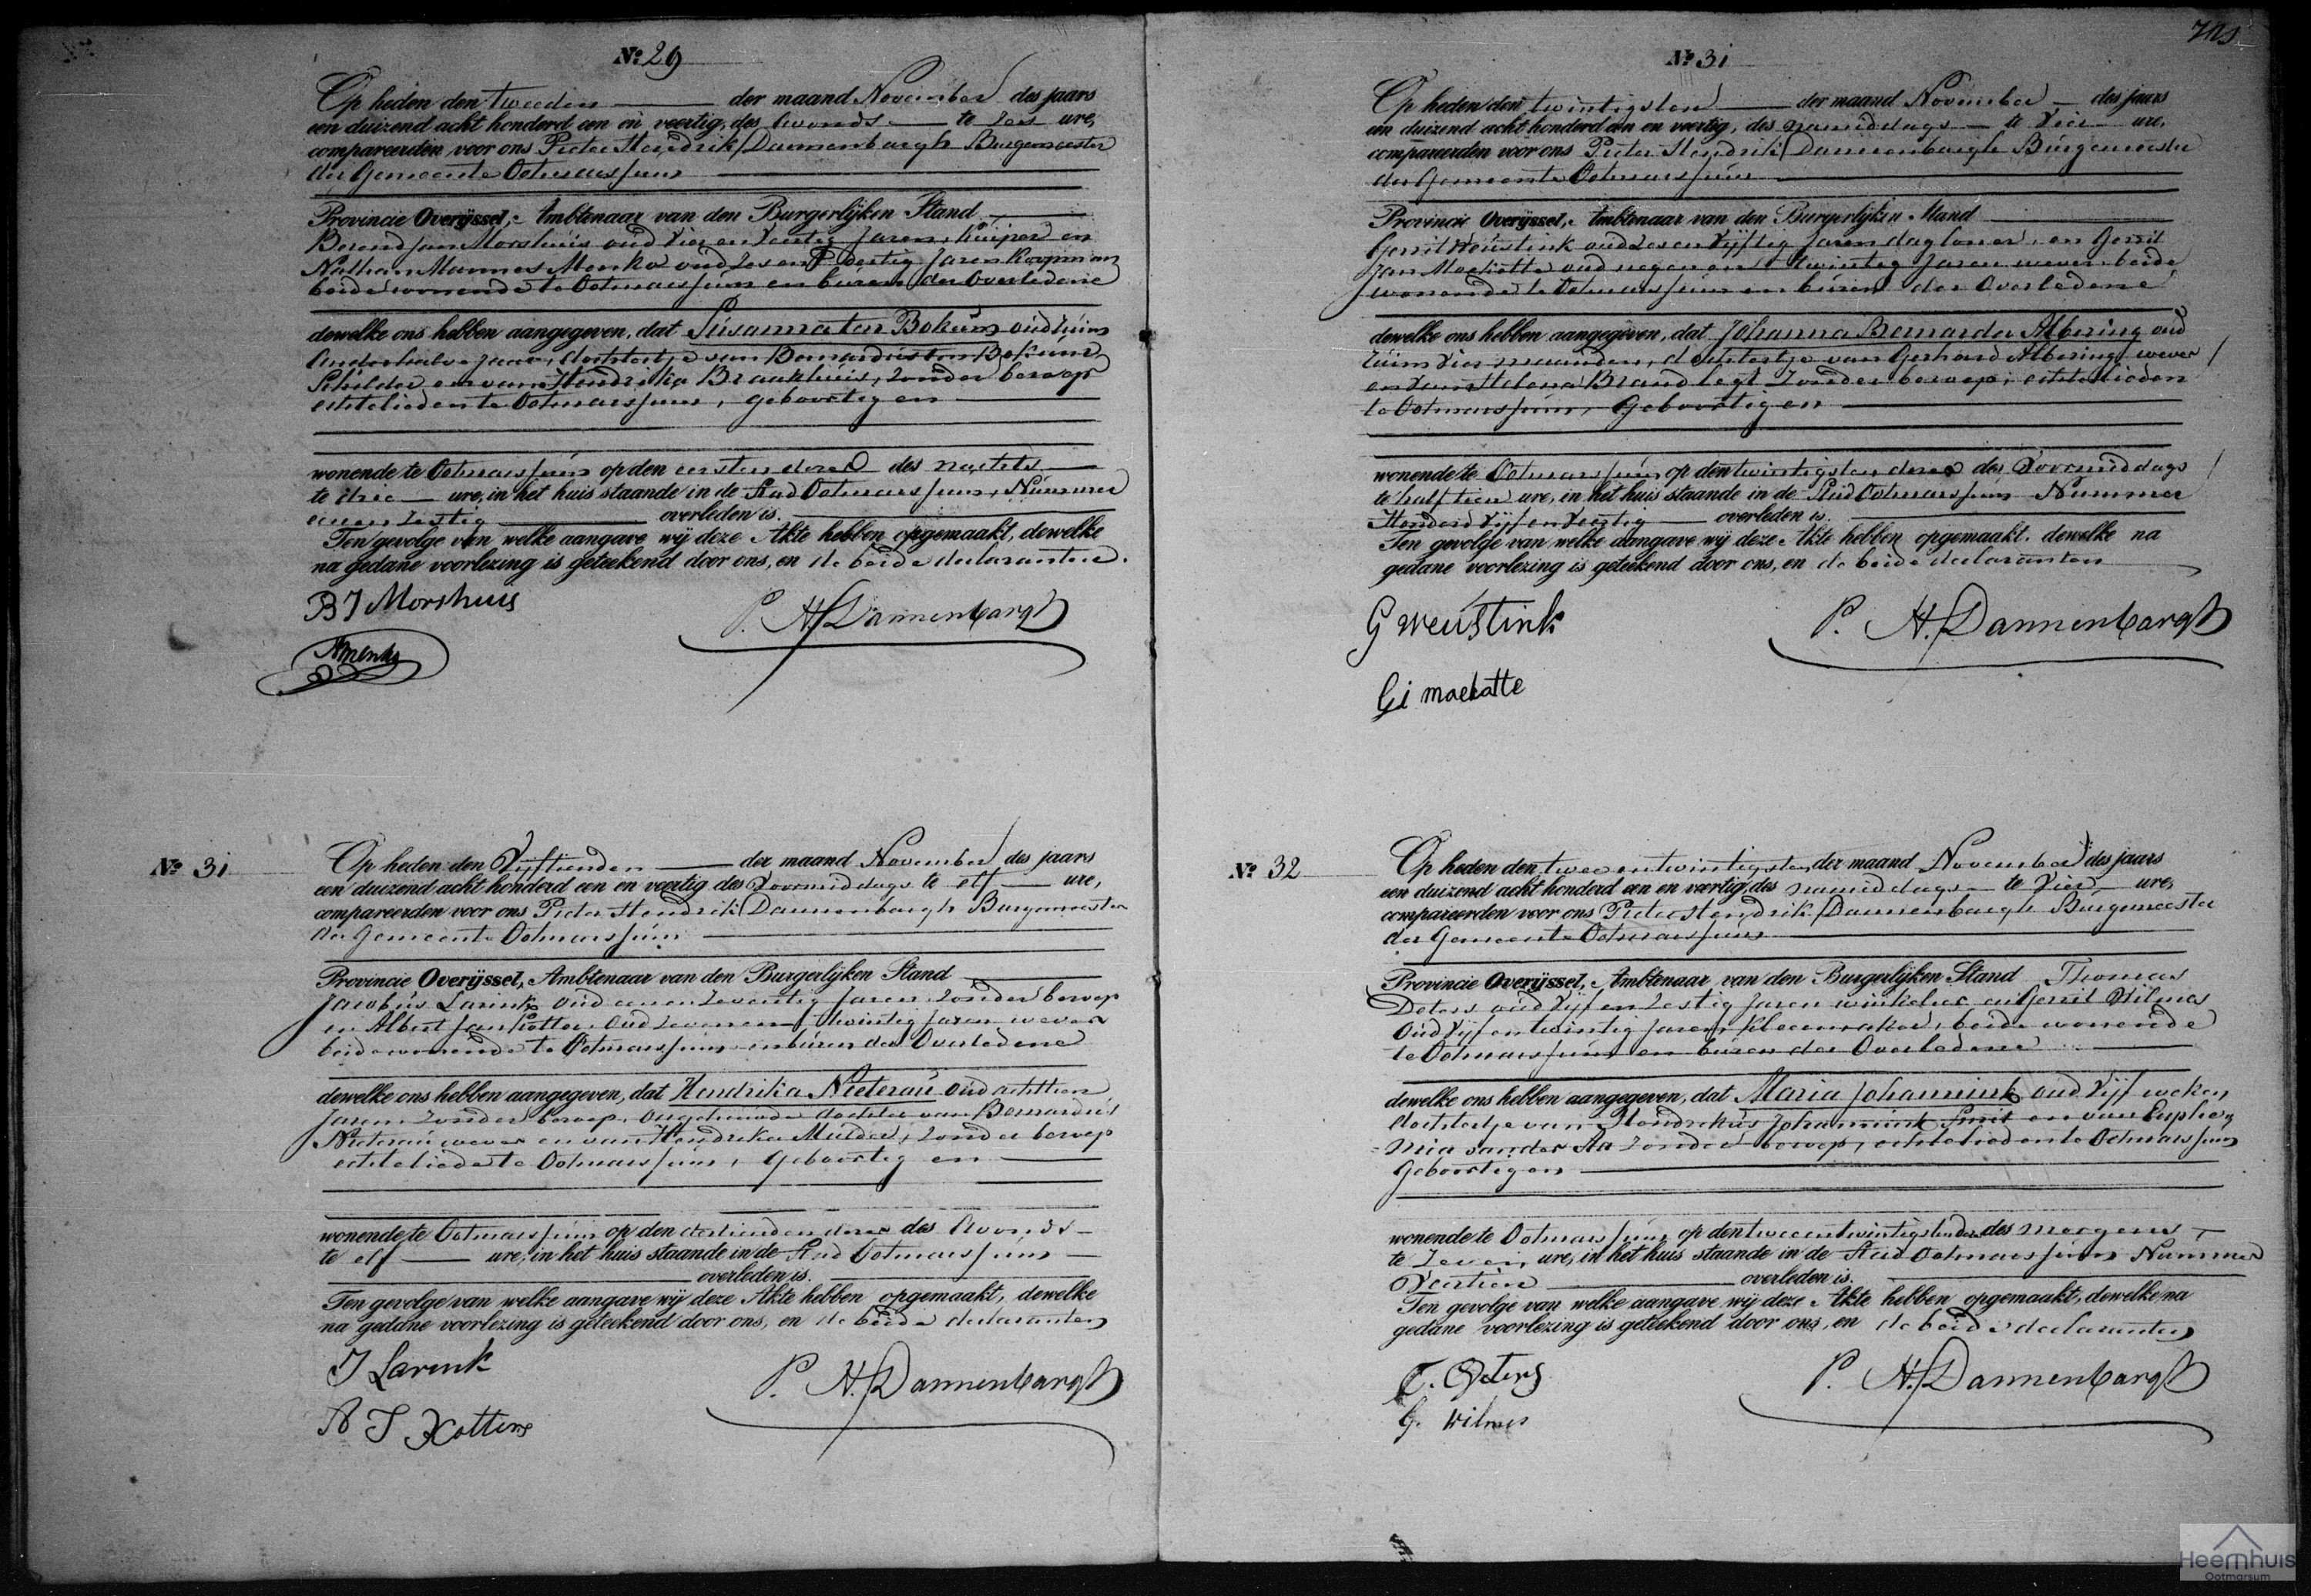 No 29
Op heden den tweeden der maand November des jaars
een duizend acht honderd een en veertig, des avonds te zes ure,
compareerden voor ons Pieter Hendrik Dannenbargh Burgemeester
der Gemeente Ootmarssum
Provincie Overijssel, Ambtenaar van den Burgerlijken Stand
Berend Jan Morshuis oud vier en veertig Jaren, kuiper en
Nathan Mannes Menko oud zes en veertig Jaren koopman
beide wonende te Ootmarssum en buren der Overledene
dewelke ons hebben aangegeven, dat Susanna ten Bokum oud ruim
anderhalve jaar, dochtertje van Bernardus ten Bokum,
Schilder en van Hendrika Braakhuis, zonder beroep
echtelieden te Ootmarssum, geboortig en
wonende te Ootmarssum op den eersten dezer des nachts
te drie ure, in het huis staande in de Stad Ootmarssum, Nummer
een en zestig overleden is.
Ten gevolge van welke aangave wij deze Akte hebben opgemaakt, dewelke
na gedane voorlezing is geteekend door ons, en de beide declaranten.
BJ Morshuis
P. H. Dannenbargh
NMenko
No 31
Op heden den Vijftienden der maand November des jaars
een duizend acht honderd een en veertig des Voormiddags te elf ure,
compareerden voor ons Pieter Hendrik Dannenbargh Burgemeester
der Gemeente Ootmarssum
Provincie Overijssel, Ambtenaar van den Burgerlijken Stand
Jacobus Larink, oud een en zeventig Jaren zonder beroep
en Albert Jan Kotters Oud zeven en twintig Jaren wever
beide wonende te Ootmarssum en buren der Overledene
dewelke ons hebben aangegeven, dat Hendrika Nieterau Oud achttien
Jaren zonder beroep, ongehuwde dochter van Bernardus
Nieterau wever en van Hendrika Mulder, zonder beroep
echteliede te Ootmarssum, Geboortig en
wonende te Ootmarssum op den dertienden dezer des Avonds
te elf ure, in het huis staande in de Stad Ootmarssum
overleden is.
Ten gevolge van welke aangave wij deze Akte hebben opgemaakt, dewelke
na gedane voorlezing is geteekend door ons, en de beide declaranten
J Larink
P. H. Dannenbargh
A J Kotters
No 31
Op heden den twintigsten der maand November des jaars
een duizend acht honderd een en veertig, des namiddags te Vier ure,
compareerden voor ons Pieter Hendrik Dannenbargh Burgemeester
der Gemeente Ootmarssum
Provincie Overijssel, Ambtenaar van den Burgerlijken Stand
Gerrit Weustink oud zes en Vijftig Jaren dagloner, en Gerrit
Jan Maekotte oud negen en twintig Jaren wever beide
wonende te Ootmarssum en buren der Overledene
dewelke ons hebben aangegeven, dat Johanna Bernarda Albering oud
ruim Vier maanden, dochtertje van Gerhard Albering wever
en van Helena Brandlegt zonder beroep, echtelieden
te Ootmarssum, Geboortig en
wonende te Ootmarssum op den twintigsten dezer des Voormiddags
te half tien ure, in het huis staande in de Stad Ootmarssum Nummer
Honderd Vijf en Veertig overleden is.
Ten gevolge van welke aangave wij deze Akte hebben opgemaakt, dewelke na
gedane voorlezing is geteekend door ons, en de beide declaranten
G weustink
P. H. Dannenbargh
GJ maekotte
No 32
Op heden den twee en twintigsten der maand November des jaars
een duizend acht honderd een en veertig, des namiddags te Vier ure,
compareerden voor ons Pieter Hendrik Dannenbargh Burgemeester
der Gemeente Ootmarssum
Provincie Overijssel, Ambtenaar van den Burgerlijken Stand Thomas
oud Vijf en zestig Jaren winkelier en Gerrit Wilmes
Oud Vijf en twintig Jaren, Kleermaker, beide wonende
te Ootmarssum en buren der Overledene
dewelke ons hebben aangegeven, dat Maria Johannink oud Vijf weken
dochtertje van Hendrikus Johannink Smit en van Euphe=
=mia van der Aa zonder beroep, echtelieden te Ootmarssum
Geboortig en
wonende te Ootmarssum op den twee en twintigsten dezer des morgens
te Zeven ure, in het huis staande in de Stad Ootmarssum Nummer
Veertien overleden is.
Ten gevolge van welke aangave wij deze Akte hebben opgemaakt, dewelke na
gedane voorlezing is geteekend door ons, en de beide declaranten
P. H. Dannenbargh
G. Wilmes
Heemhuis
Ootmarsum